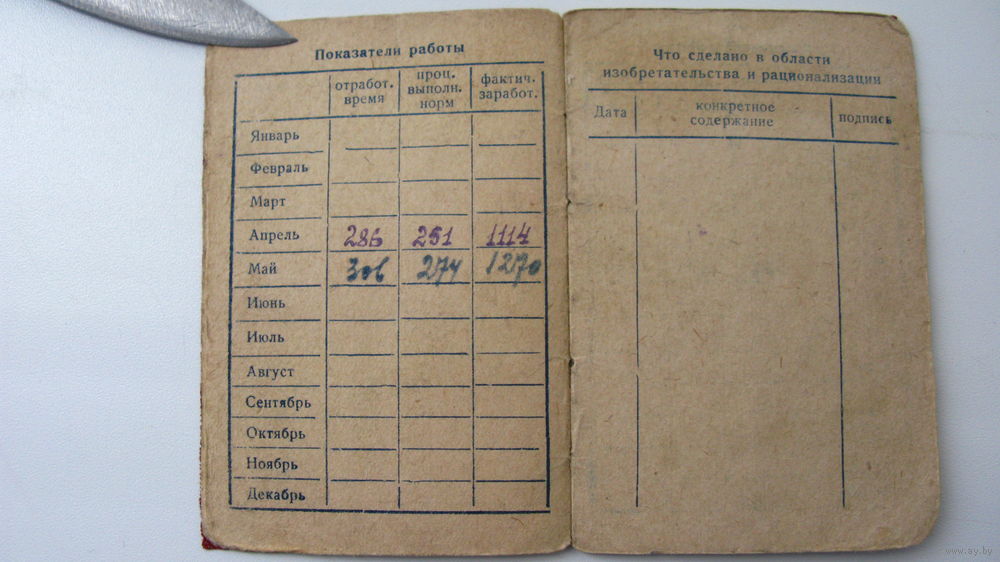 Показатели работы
отработ. время проц. выполн. норм фактич. заработ.
Январь
Февраль
Март
Апрель 286 251 1114
Май 306 274 1270
Июнь
Июль
Август
Сентябрь
Октябрь
Ноябрь
Декабрь
Что сделано в области
изобретательства и рационализации
Дата конкретное содержание подпись
www.ay.by